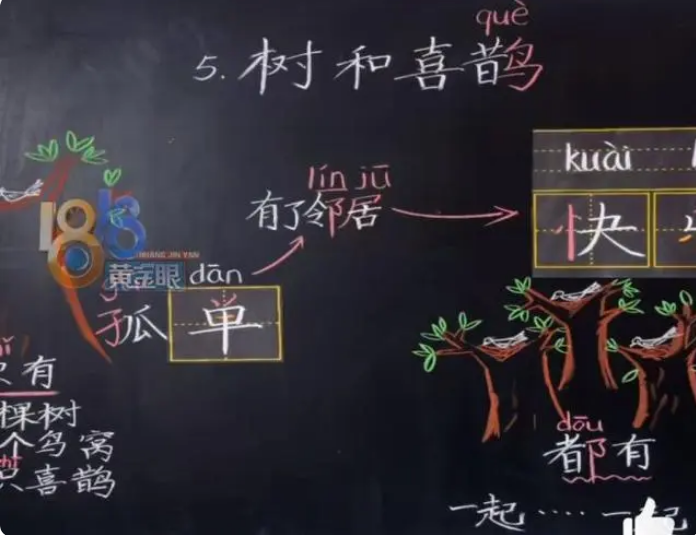 què
5. 树和喜鹊
lín jū
有了邻居
kuài
快
1818
HUANG JIN YAN
黄金眼
dān
孤单
只有
棵树
个鸟窝
只喜鹊
dōu
都有
一起····一起